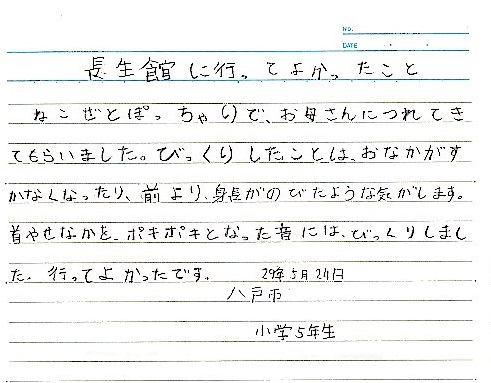 NO.
DATE
長生館に行ってよかったこと
ねこぜとぽっちゃりで、お母さんにつれてき
てもらいました。びっくりしたことは、おなかがす
かなくなったり、前より、身長がのびたような気がします。
首やせなかを、ポキポキとなった音には、びっくりしまし
た。行ってよかったです。 29年5月24日
八戸市
小学5年生